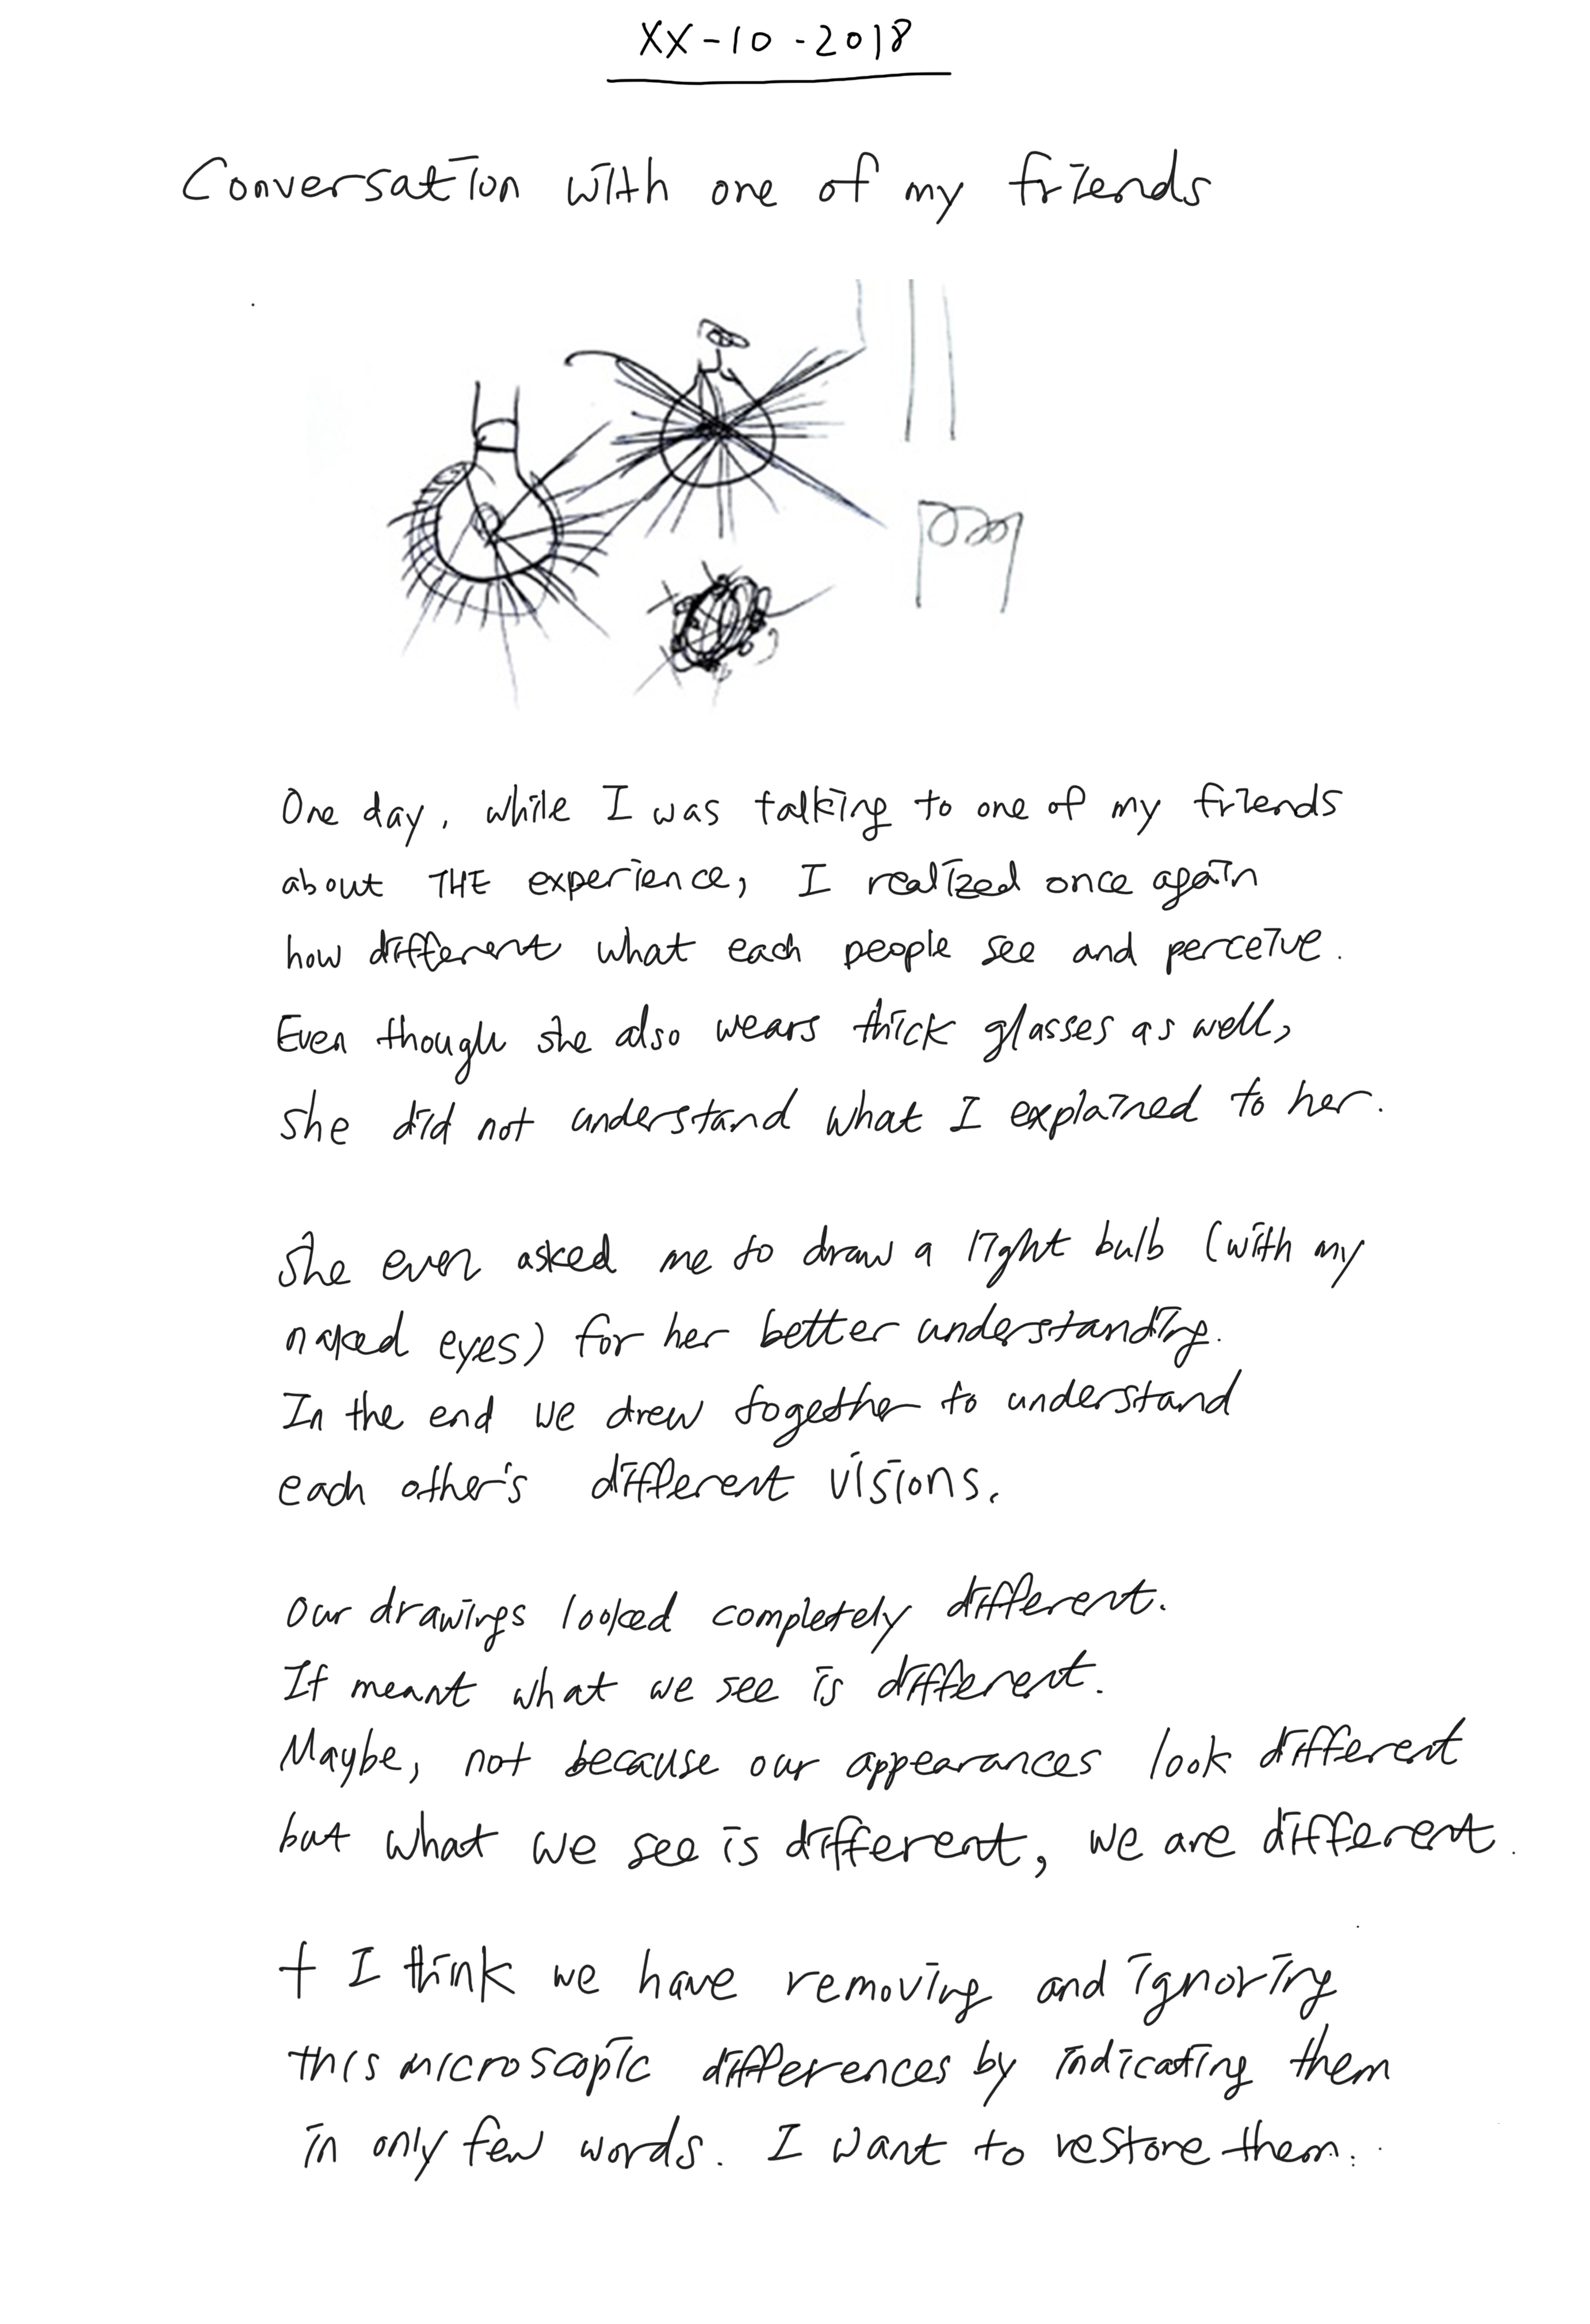 XX-10-2018
Conversation with one of my friends
One day, while I was talking to one of my friends
about THE experience, I realized once again
how different what each people see and perceive.
Even though she also wears thick glasses as well,
she did not understand what I explained to her.
She even asked me to draw a light bulb (with my
naked eyes) for her better understanding.
In the end we drew together to understand
each other's different visions.
Our drawings looked completely different.
It meant what we see is different.
Maybe, not because our appearances look different
but what we see is different, we are different.
+ I think we have removing and ignoring
this microscopic differences by indicating them
in only few words. I want to restore them.